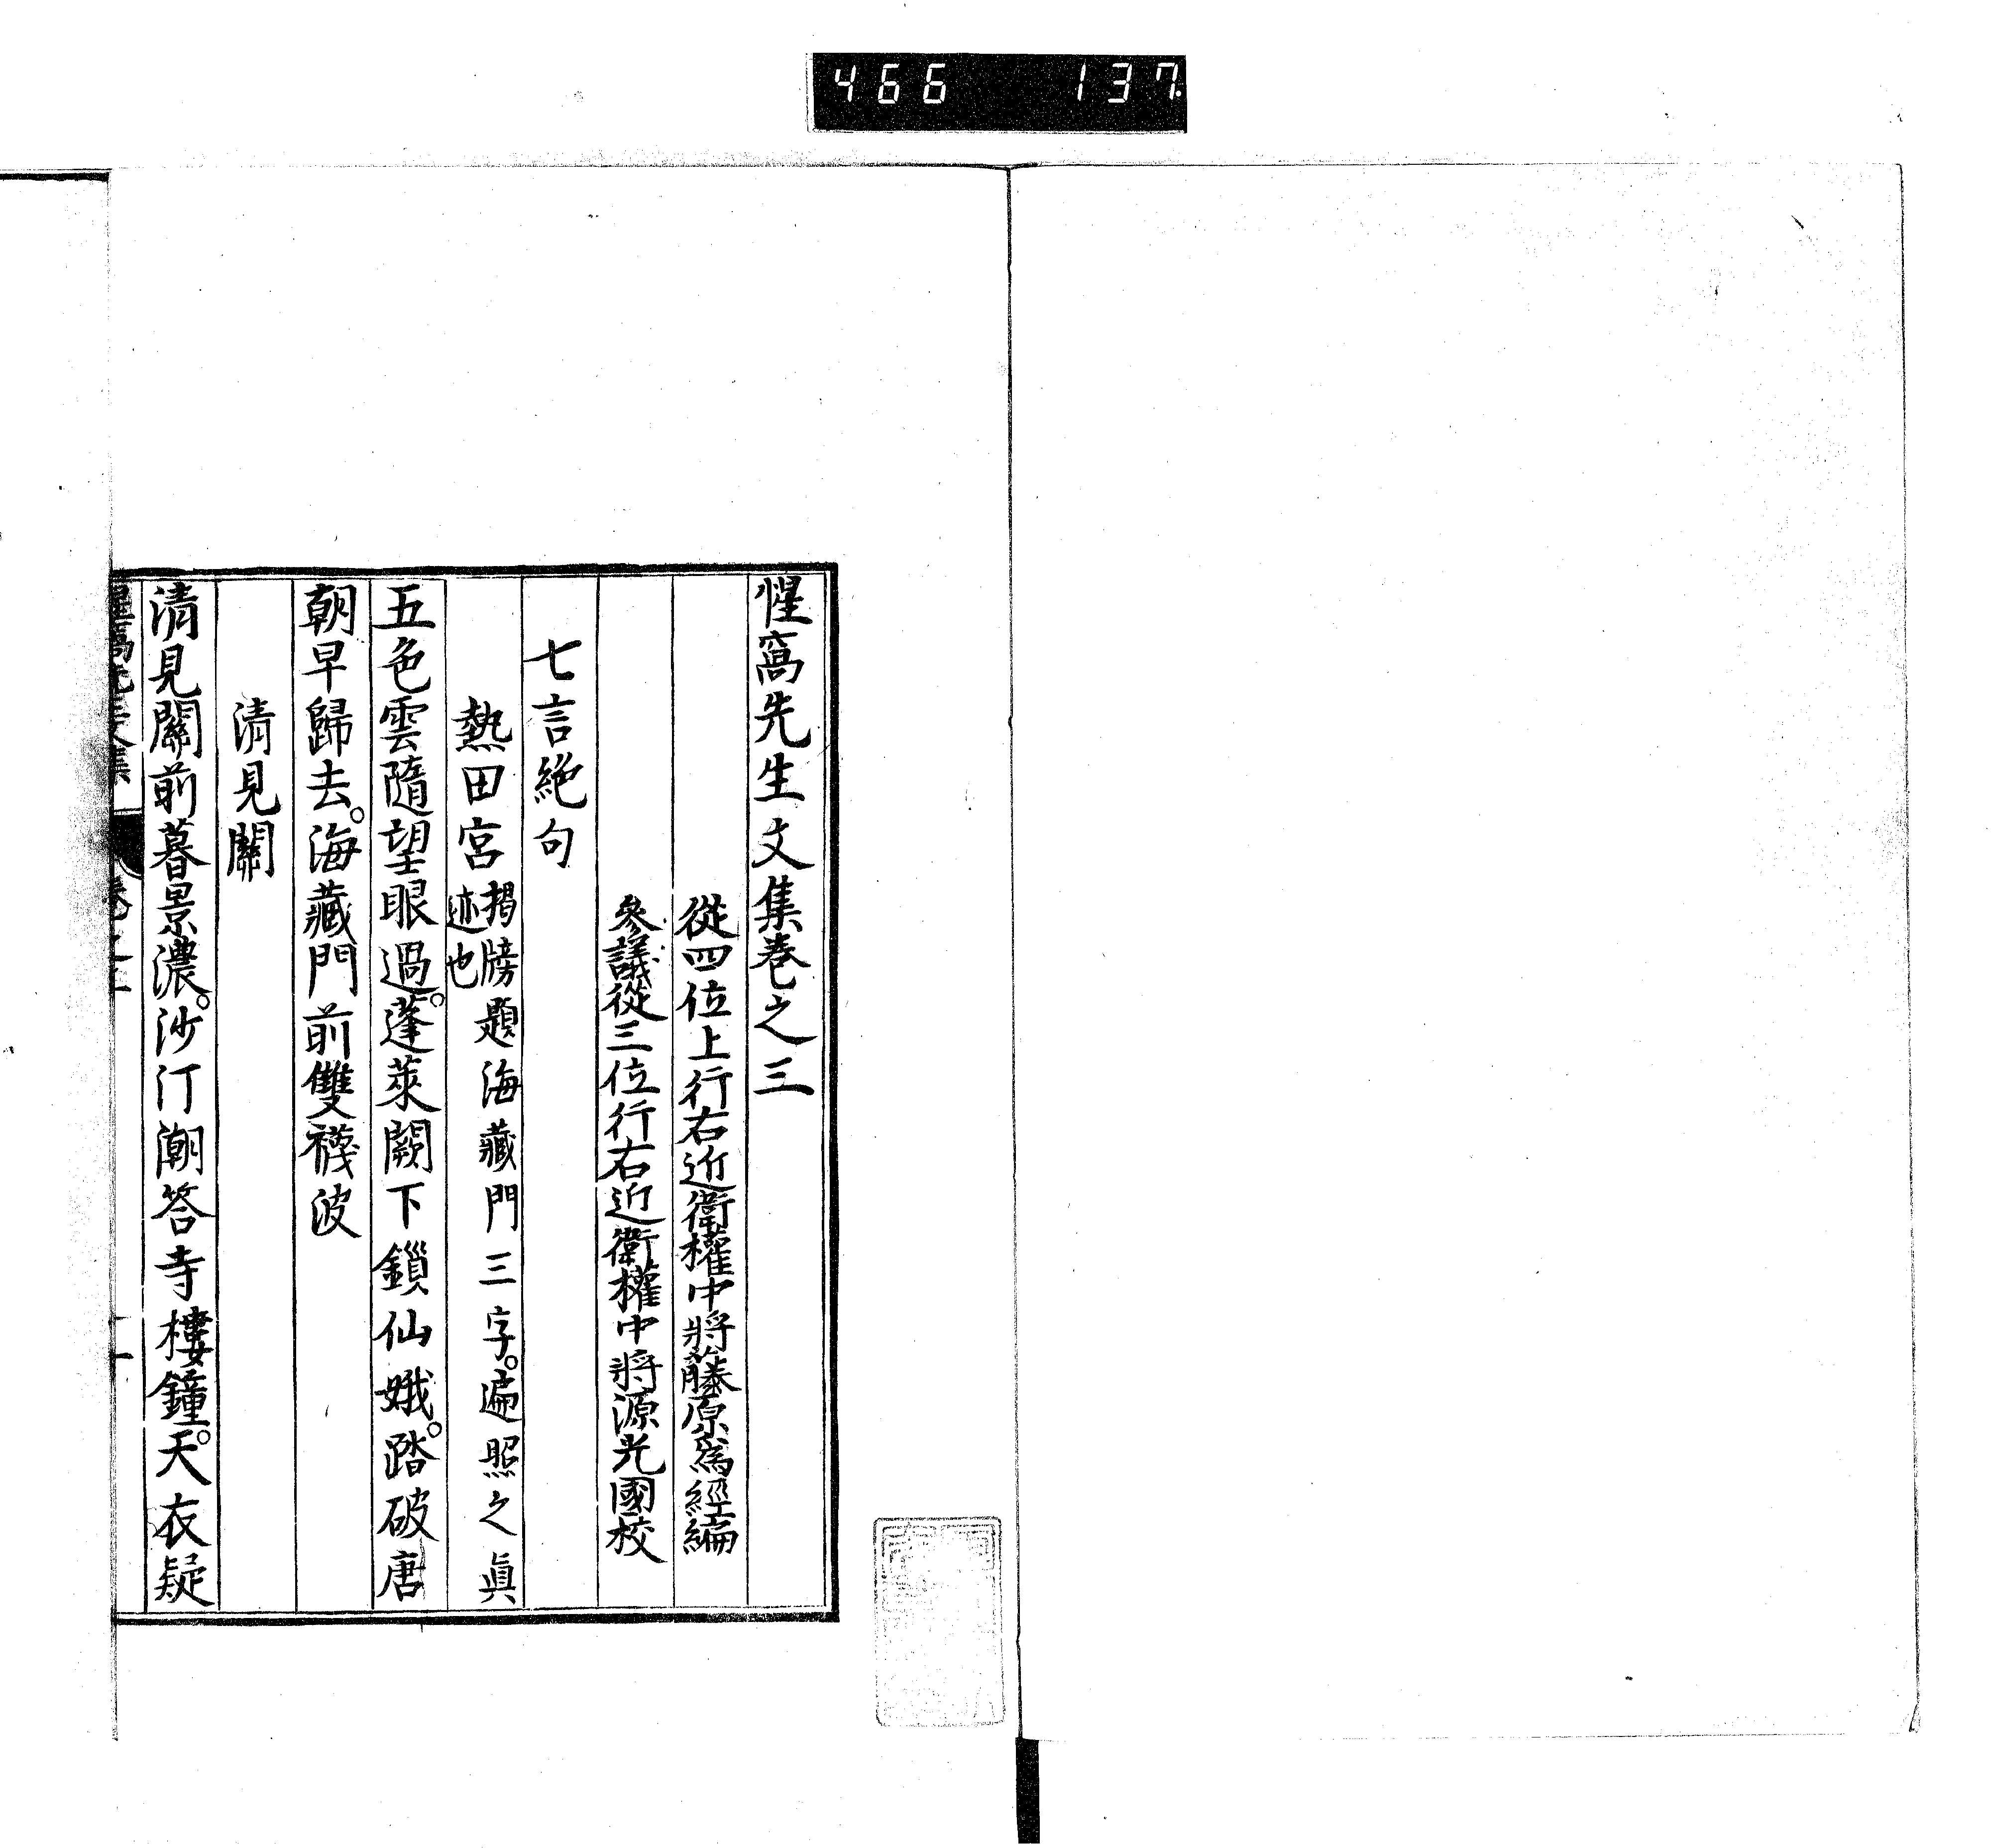 466 137
惺窩先生文集卷之三
從四位上行右近衛權中將藤原爲經編
參議從三位行右近衛權中將源光國校
七言絶句
熱田宮 揭牓題海藏門三字。遍照之眞
迹也
五色雲隨望眼過。蓬萊闕下鎻仙娥。踏破唐
朝早歸去。海藏門前雙襪波
清見關
清見關前暮景濃。沙汀潮答寺樓鐘。天衣疑